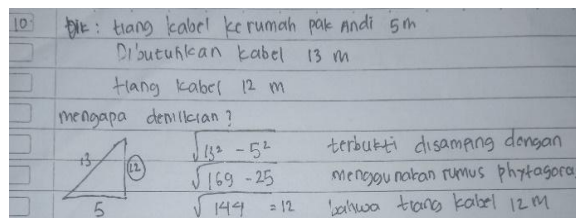 10 Dik : tiang kabel ke rumah pak Andi 5m
Dibutuhkan kabel 13 m
tiang kabel 12 m
mengapa demikian?
√13² - 5² terbukti disamping dengan
13 12 √169 - 25 menggunakan rumus phytagoras
5 √144 = 12 bahwa tiang kabel 12 m